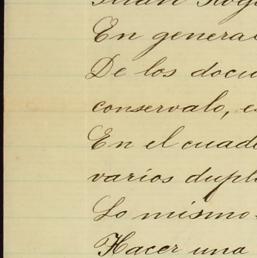 Juan Rog
En genera
De los docu
conservalo, e
En el cuade
varios dupl
Lo mismo
Hacer una